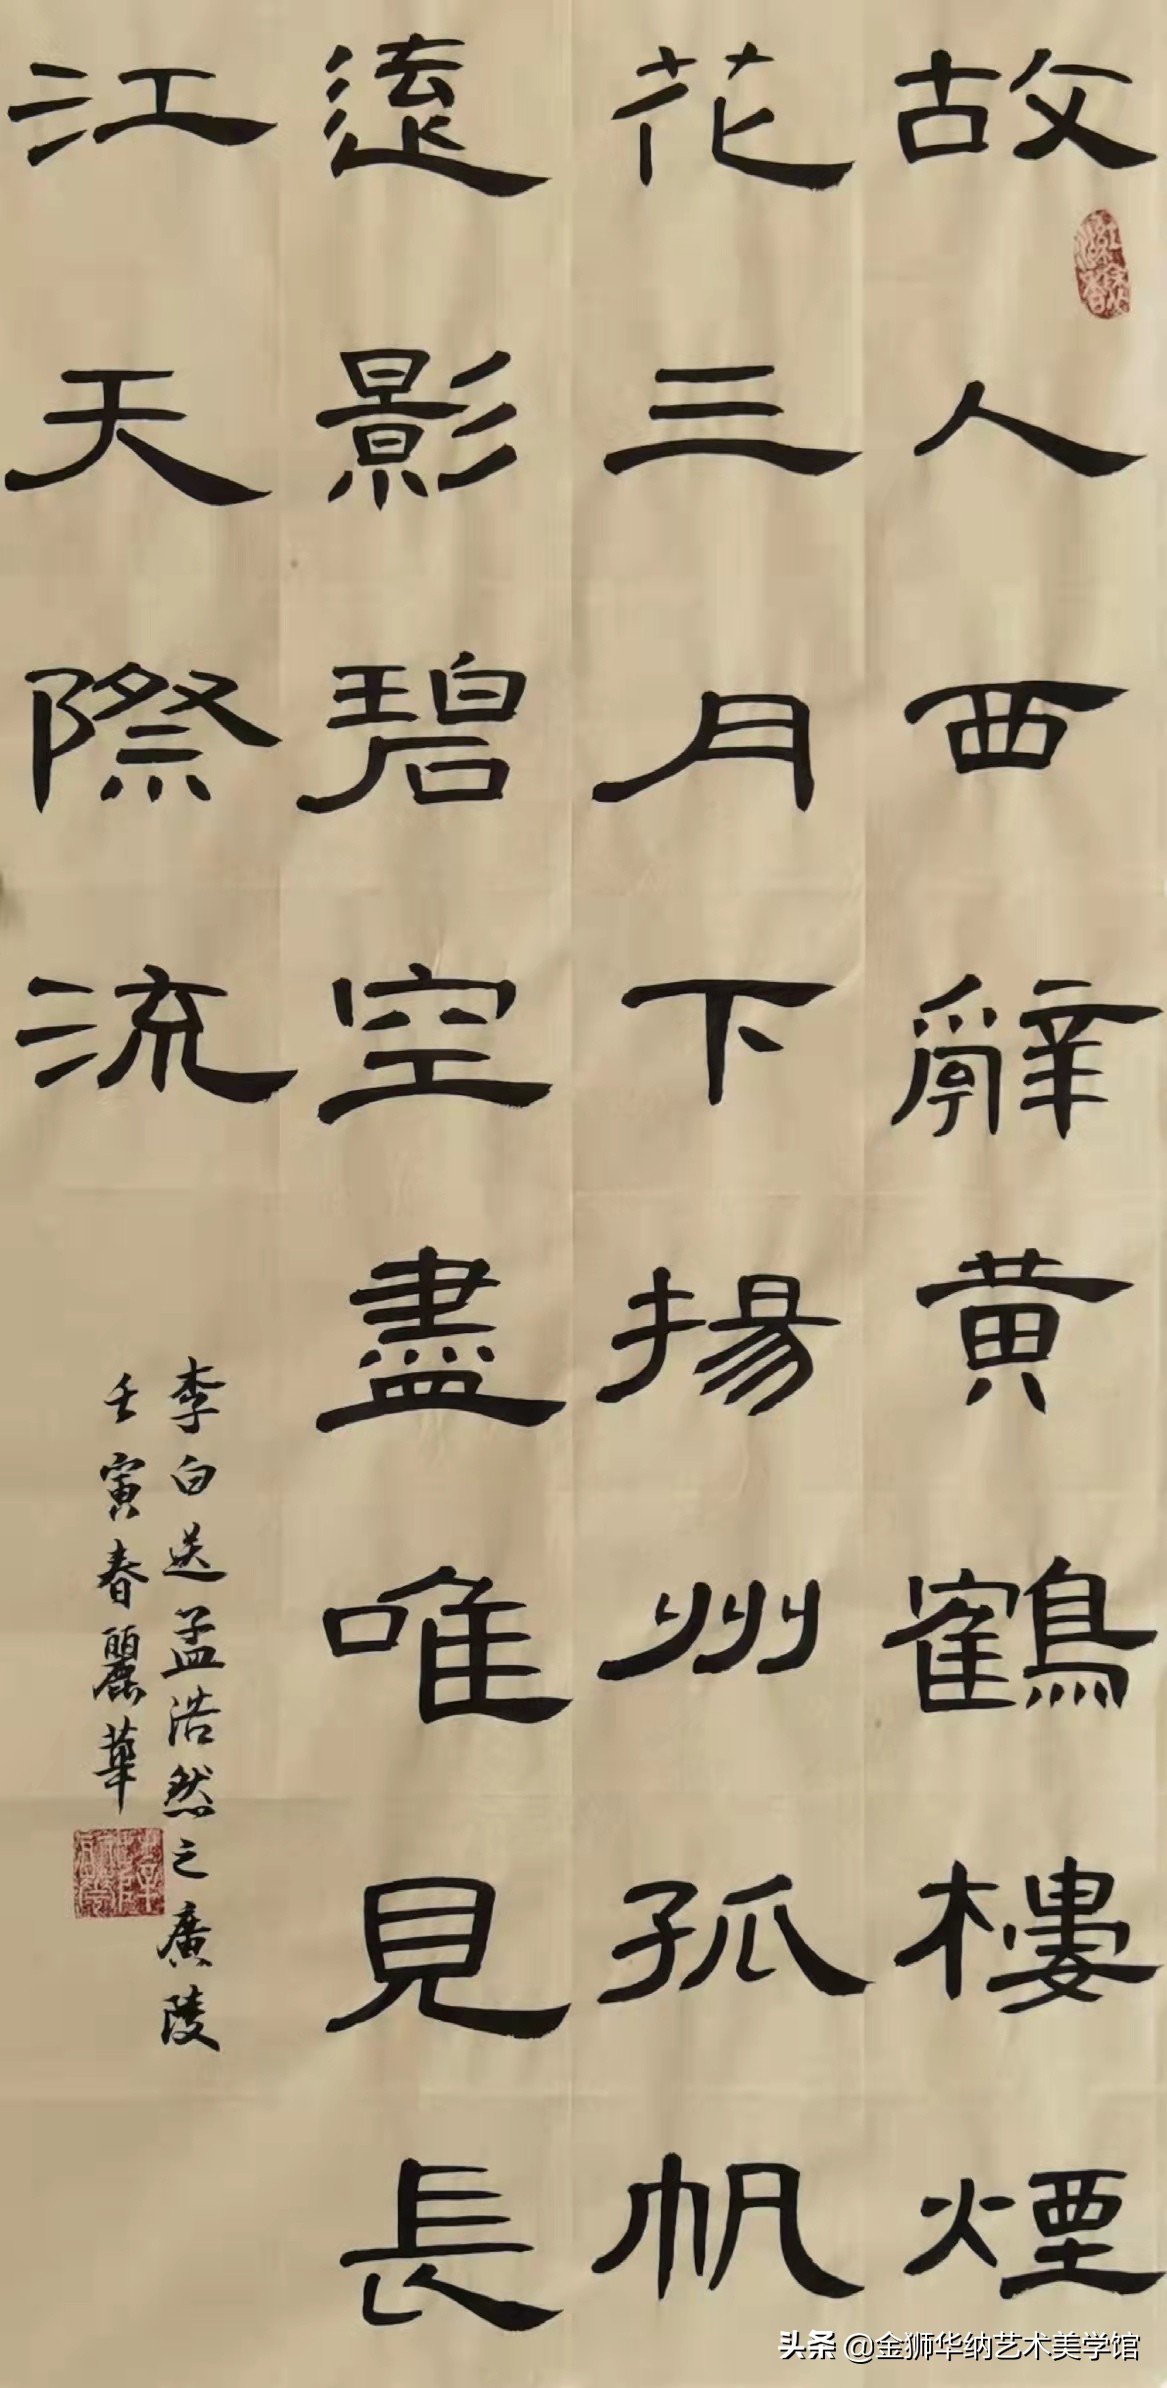 故人西辭黄鶴樓煙
花三月下揚州孤帆
遠影碧空盡唯見長
江天際流
李白送孟浩然之廣陵
壬寅春麗華
头条 @金狮华纳艺术美学馆